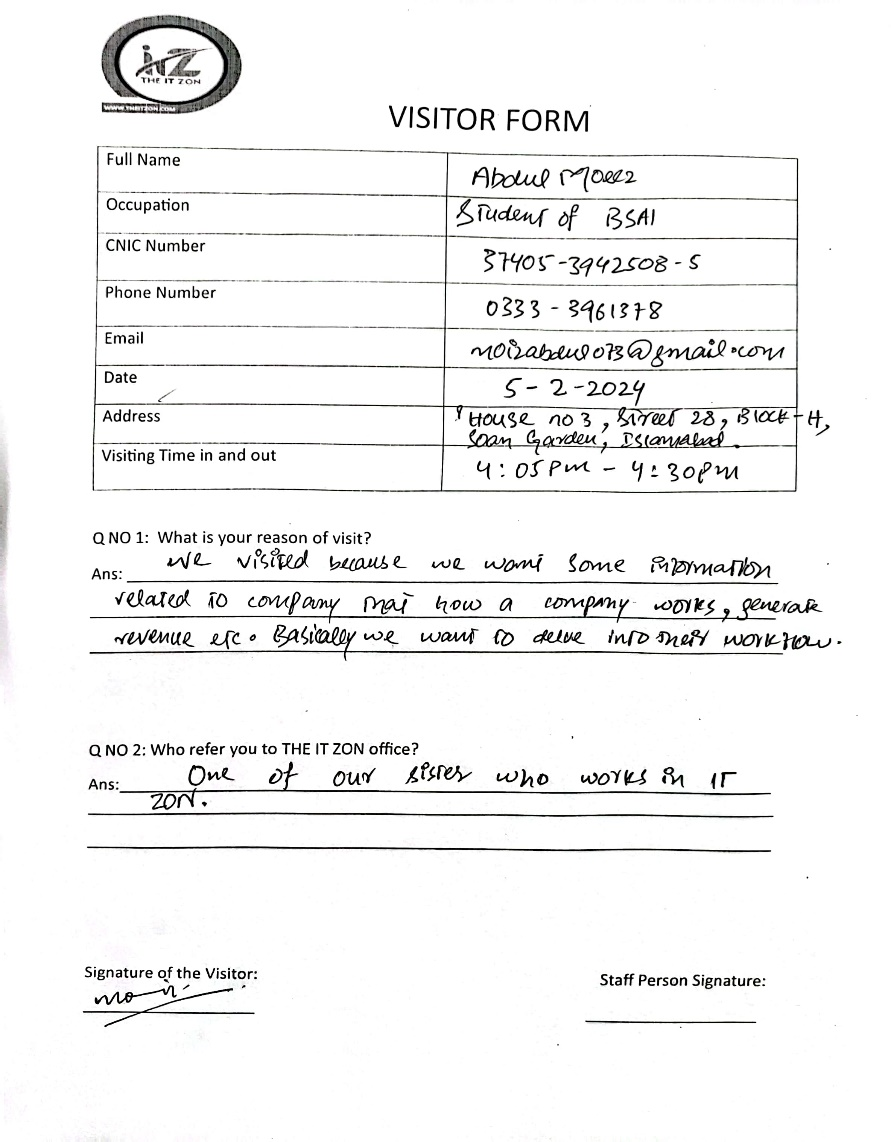 itZ
THE IT ZON
WWW.THEITZON.COM
VISITOR FORM
Full Name Abdul Moeez
Occupation Student of BSAI
CNIC Number 37405-3942508-5
Phone Number 0333-3961378
Email moizabdul073@gmail.com
Date 5-2-2024
Address House no 3, Street 28, Block-H,
Soan Garden, Islamabad.
Visiting Time in and out 4:05Pm - 4:30pm
Q NO 1: What is your reason of visit?
Ans: We visited because we want some information
related to company that how a company works, generate
revenue etc. Basically we want to delve into their workflow.
Q NO 2: Who refer you to THE IT ZON office?
Ans: One of our sister who works in IT
ZON.
Signature of the Visitor:
Staff Person Signature: